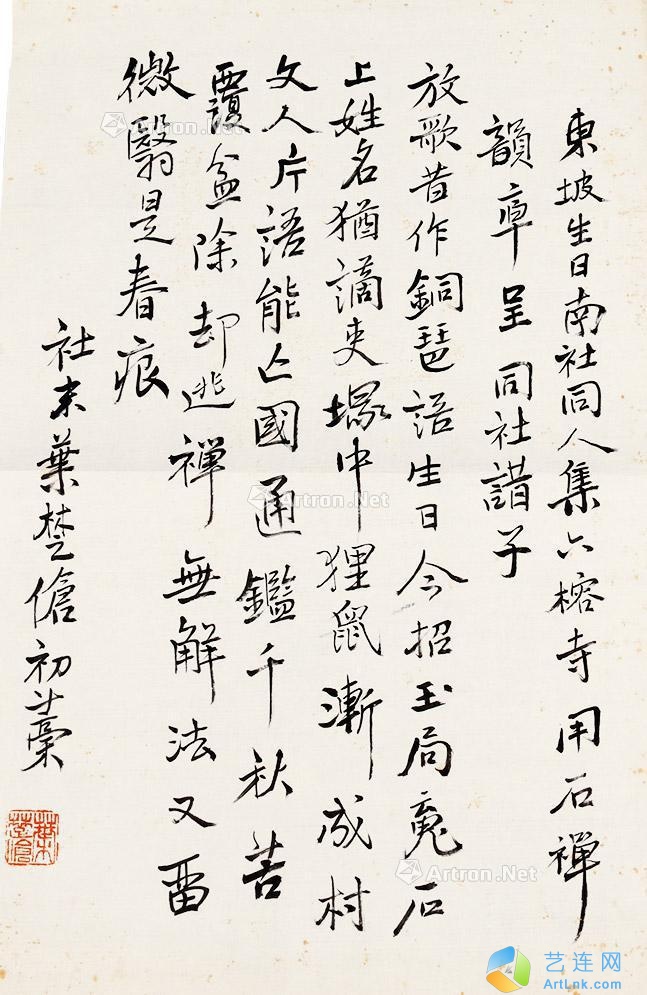 東坡生日南社同人集六榕寺用石禪
韻率呈同社諸子
放歌昔作銅琶語生日今招玉局魂石
上姓名猶謫吏塚中狸鼠漸成村
文人片語能亡國通鑑千秋苦
覆盆除却逃禪無解法又留
微翳是春痕
社末葉楚傖初稾
葉楚傖
Artron.Net
Artron.Net
Artron.Net
Artron.Net
Artron.Net
艺连网
ArtLnk.com